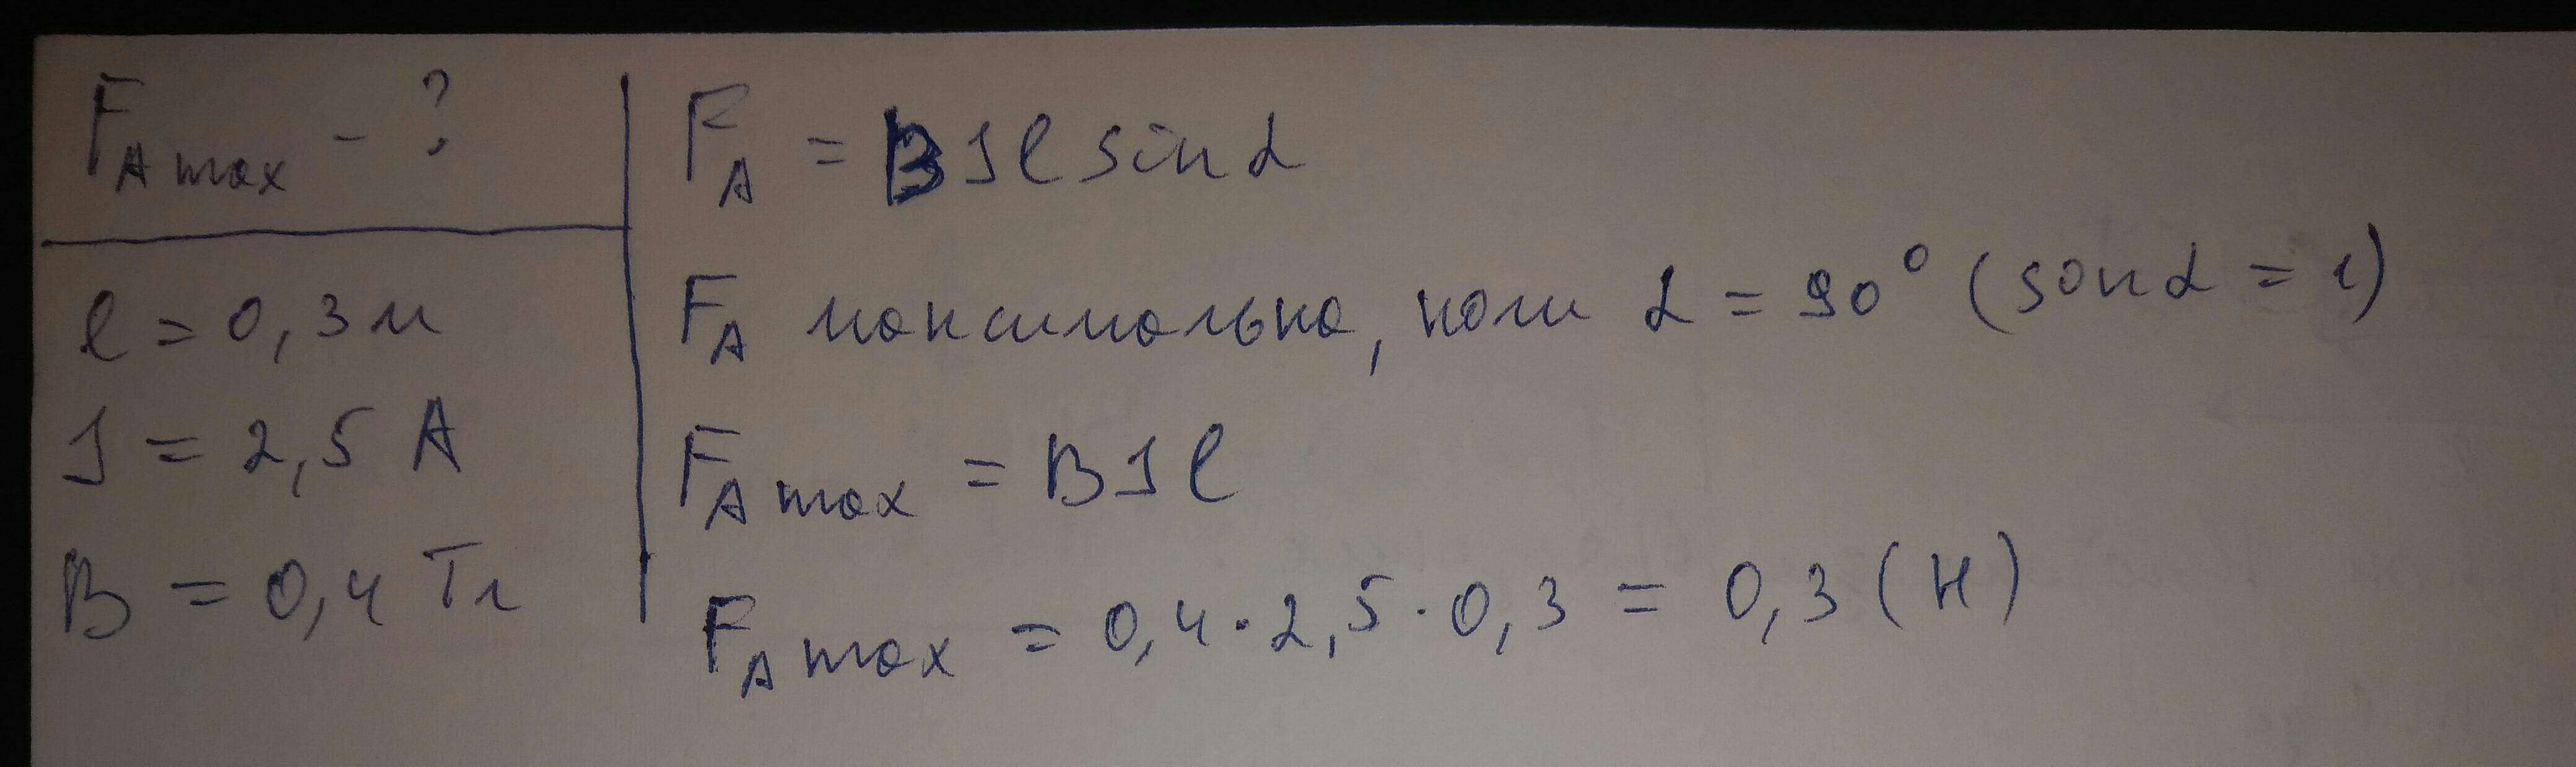 F_A max - ?
l = 0,3 м
I = 2,5 А
B = 0,4 Тл
F_A = B I l sin α
F_A максимальна, коли α = 90° (sin α = 1)
F_A max = B I l
F_A max = 0,4 · 2,5 · 0,3 = 0,3 (Н)